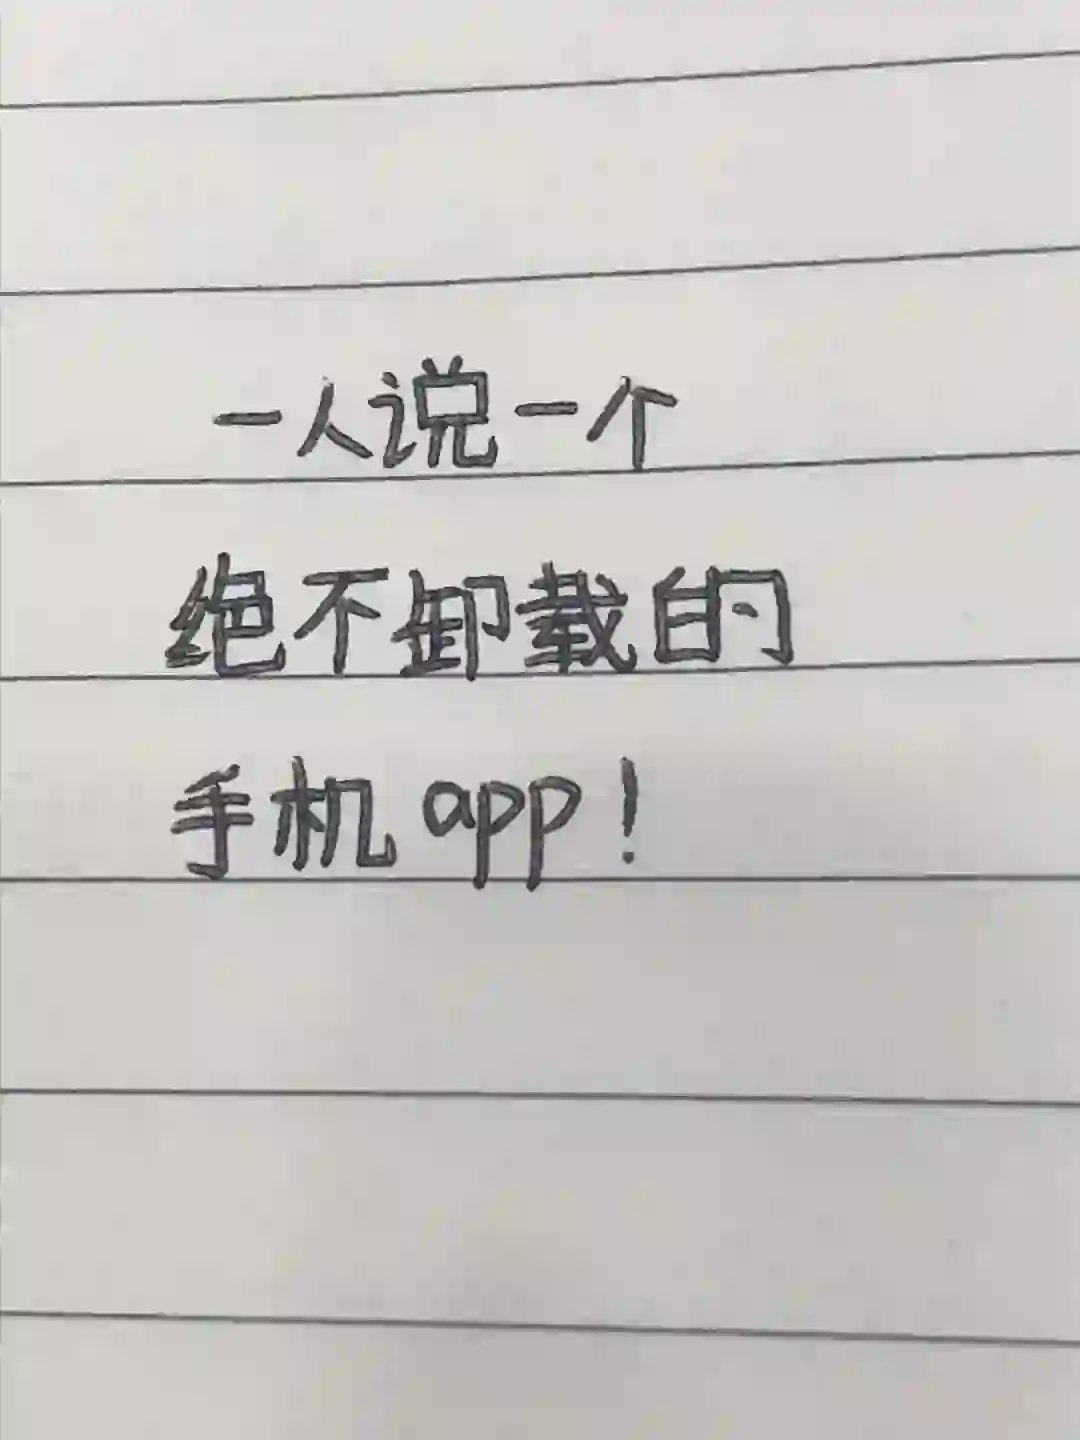 一人说一个
绝不卸载的
手机app!